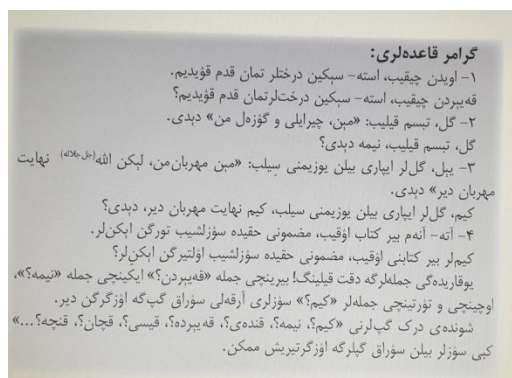 گرامر قاعده‌لری:
۱- اویدن چیقیب، استه- سېکین درختلر تمان قدم قۉیدیم.
قه‌یېردن چیقیب، استه- سېکین درخت‌لرتمان قدم قۉیدیم؟
۲- گل، تبسم قیلیب: «مېن، چیرایلی و گۉزه‌ل من» دېدی.
گل، تبسم قیلیب، نیمه دېدی؟
۳- یېل، گل‌لر ایپاری بیلن یوزیمنی سیلب: «مېن مهربان‌من، لېکن الله(جل جلاله) نهایت
مهربان دیر» دېدی.
کیم، گل‌لر ایپاری بیلن یوزیمنی سیلب، کیم نهایت مهربان دیر، دېدی؟
۴- آته- آنه‌م بیر کتاب اۉقیب، مضمونی حقیده سۉزلشیب تورگن اېکن‌لر.
کیم‌لر بیر کتابنی اۉقیب، مضمونی حقیده سۉزلشیب اۉلتیرگن اېکن‌لر؟
یوقاریده‌گی جمله‌لرگه دقت قیلینگ! بیرینچی جمله «قه‌یېردن؟» ایکینچی جمله «نیمه؟»،
اوچینچی و تۉرتینچی جمله‌لر «کیم؟» سۉزلری آرقه‌لی سۉراق گپ‌گه اۉزگرگن دیر.
شونده‌ی درک گپ‌لرنی «کیم؟، نیمه؟، قنده‌ی؟، قه‌یېرده؟، قیسی؟، قچان؟، قنچه؟...»
کبی سۉزلر بیلن سۉراق گپلرگه اۉزگرتیریش ممکن.